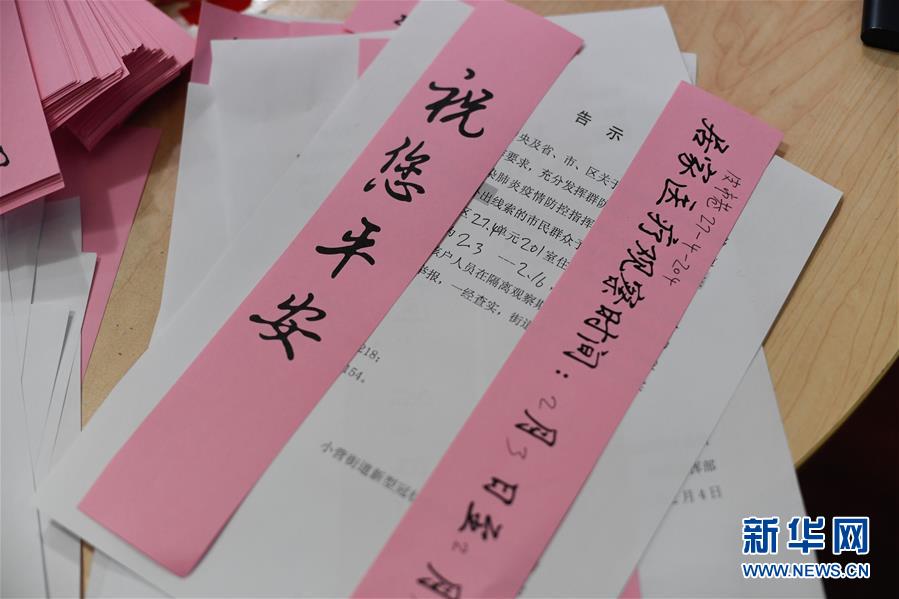 祝您平安
告示
央及省、市、区关于
要求，充分发挥群防
染肺炎疫情防控指挥
出线索的市民群众予
区27.4单元201室住
2.3—2.16，
户人员在隔离观察期
举报，一经查实，街道
218；
154。
小营街道新型冠
挥部
月4日
22-4-204
居家医疗观察时间：2月3日至2月
新华网
WWW.NEWS.CN